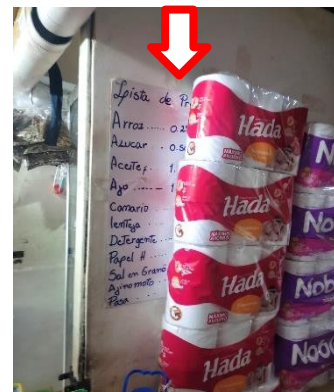 Lista de Pr
Arroz ...... 0.2
Azucar . 0.5
Aceite, . 1.
Ajo ------ 1
Canario
lenteja
Detergente
Papel H
Sal en Grano
Ajinomoto
Pasa
Hada
Hada
Hada
Hada
No
Nob
Nob
Nob